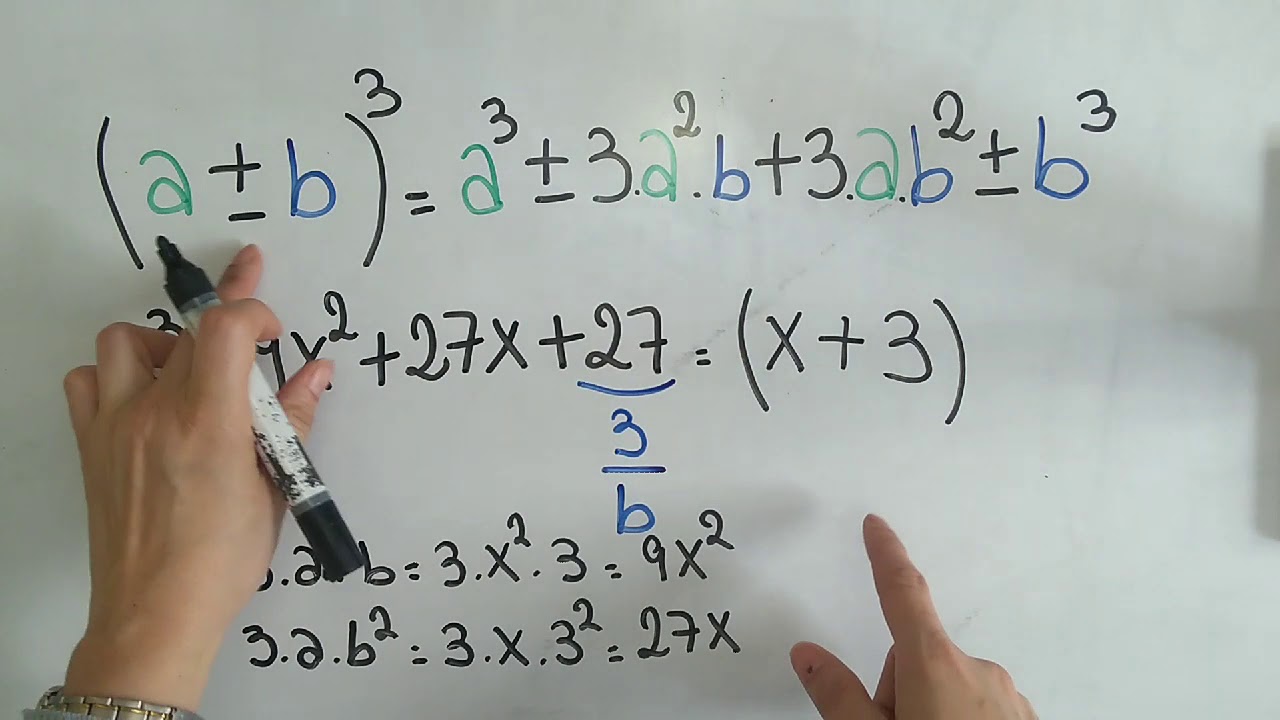 (a ± b)³ = a³ ± 3.a².b + 3.a.b² ± b³
³ 9x² + 27x + 27 = (x + 3)
3
b
.a. b = 3.x².3 = 9x²
3.a.b² = 3.x.3² = 27x